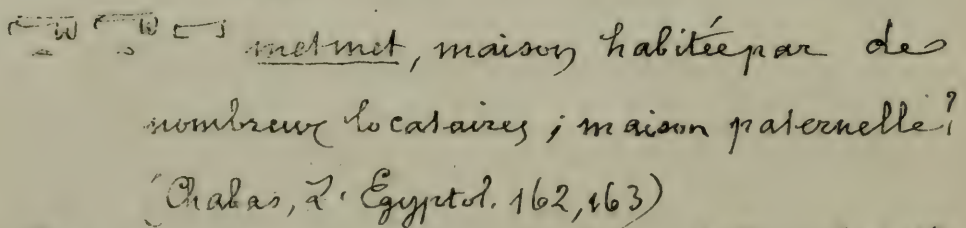 metmet, maison habitée par de
nombreux locataires ; maison paternelle ?
(Chabas, L. Égyptol. 162, 163)